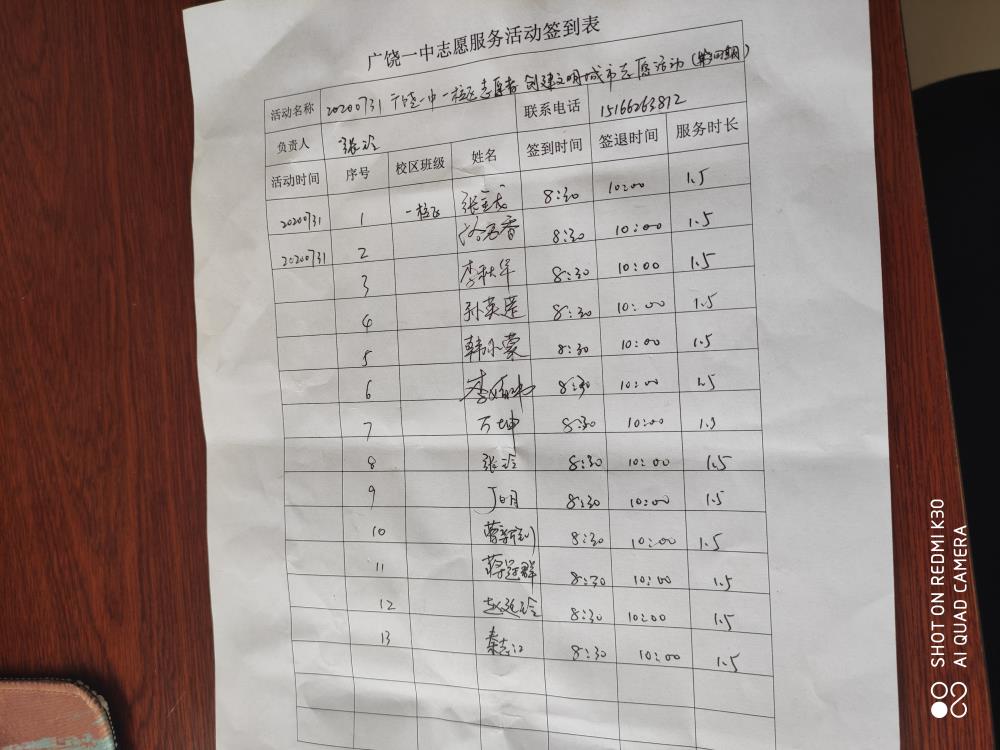 广饶一中志愿服务活动签到表
活动名称 20200731 广饶一中一校区志愿者 创建文明城市志愿活动
负责人 张玲 联系电话 15166263812
活动时间 序号 校区班级 姓名 签到时间 签退时间 服务时长
20200731 1 一校区 8:30 10:00 1.5
20200731 2 8:30 10:00 1.5
3 李秋华 8:30 10:00 1.5
4 孙英莲 8:30 10:00 1.5
5 韩小蒙 8:30 10:00 1.5
6 8:30 10:00 1.5
7 万坤 8:30 10:00 1.5
8 张玲 8:30 10:00 1.5
9 丁明 8:30 10:00 1.5
10 8:30 10:00 1.5
11 蒋冠群 8:30 10:00 1.5
12 赵延玲 8:30 10:00 1.5
13 秦志江 8:30 10:00 1.5
SHOT ON REDMI K30
AI QUAD CAMERA